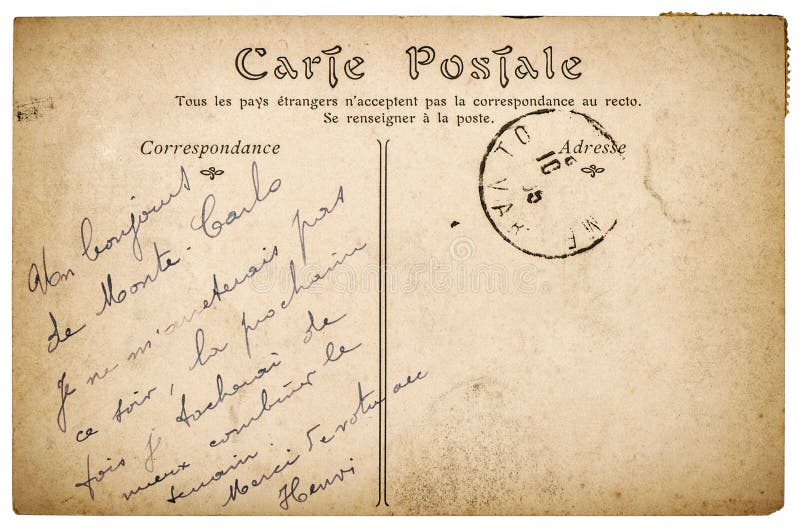 Carte Postale
Tous les pays étrangers n'acceptent pas la correspondance au recto.
Se renseigner à la poste.
Correspondance
Adresse
TO
VAR
10
Un bonjour
de Monte-Carlo
Je ne m'arreterais pas
ce soir, la prochaine
fois je tacherai de
mieux combiner le
terrain. Merci de votre
Henri
dreamstime